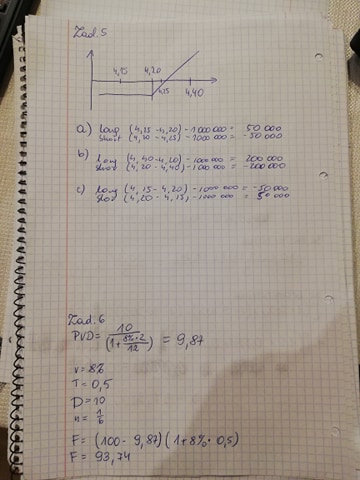 Zad. 5
4,15 4,20 4,25 4,40
a) long (4,25 - 4,20) - 1000 000 = 50 000
short (4,20 - 4,25) - 1000 000 = -50 000
b) long (4,40 - 4,20) - 1000 000 = 200 000
short (4,20 - 4,40) - 1000 000 = -200 000
c) long (4,15 - 4,20) - 1000 000 = -50 000
short (4,20 - 4,15) - 1000 000 = 50 000
Zad. 6
PVD = 10 / (1 + 8% · 2 / 12) = 9,87
r = 8%
T = 0,5
D = 10
n = 1/6
F = (100 - 9,87) (1 + 8% · 0,5)
F = 93,74